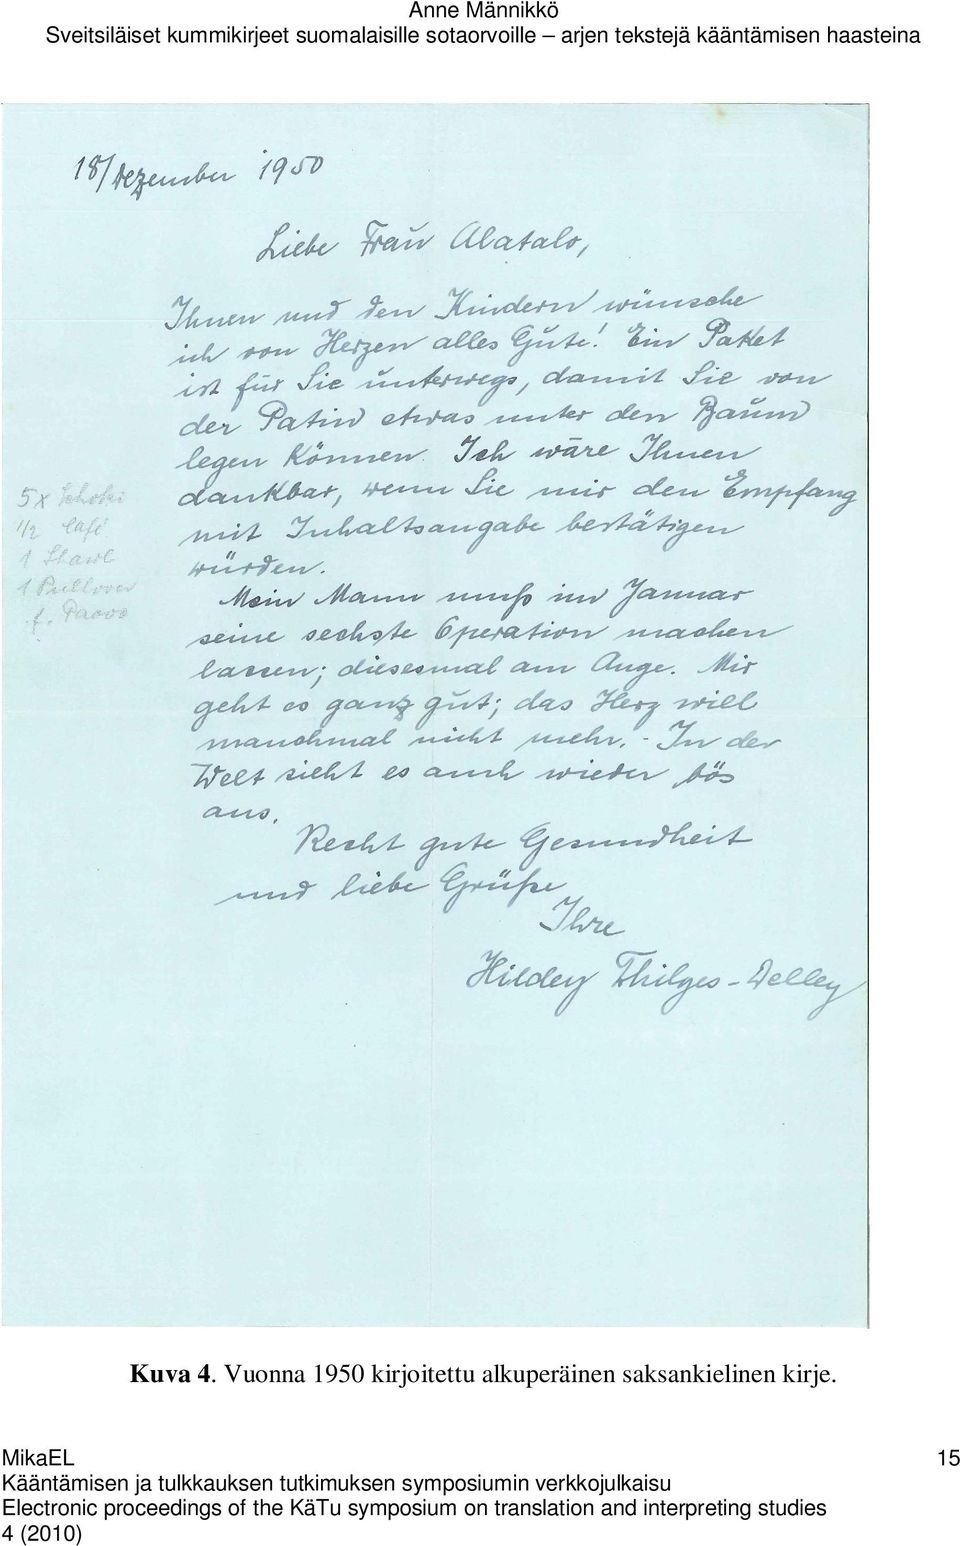 Anne Männikkö
Sveitsiläiset kummikirjeet suomalaisille sotaorvoille – arjen tekstejä kääntämisen haasteina
18/Dezember 1950
Liebe Frau Alatalo,
Ihnen und den Kindern wünsche
ich von Herzen alles Gute! Ein Paket
ist für Sie unterwegs, damit Sie von
der Patin etwas unter den Baum
legen können. Ich wäre Ihnen
dankbar, wenn Sie mir den Empfang
mit Inhaltsangabe bestätigen
würden.
Mein Mann muß im Januar
seine sechste Operation machen
lassen; diesesmal am Auge. Mir
geht es ganz gut; das Herz will
manchmal nicht mehr. - In der
Welt sieht es auch wieder bös
aus.
Recht gute Gesundheit
und liebe Grüße
Ihre
Hildey Thilges-Delley
5x Schoki
1/2 Café
1 Shawl
1 Pullover
f. Paavo
Kuva 4. Vuonna 1950 kirjoitettu alkuperäinen saksankielinen kirje.
MikaEL 15
Kääntämisen ja tulkkauksen tutkimuksen symposiumin verkkojulkaisu
Electronic proceedings of the KäTu symposium on translation and interpreting studies
4 (2010)